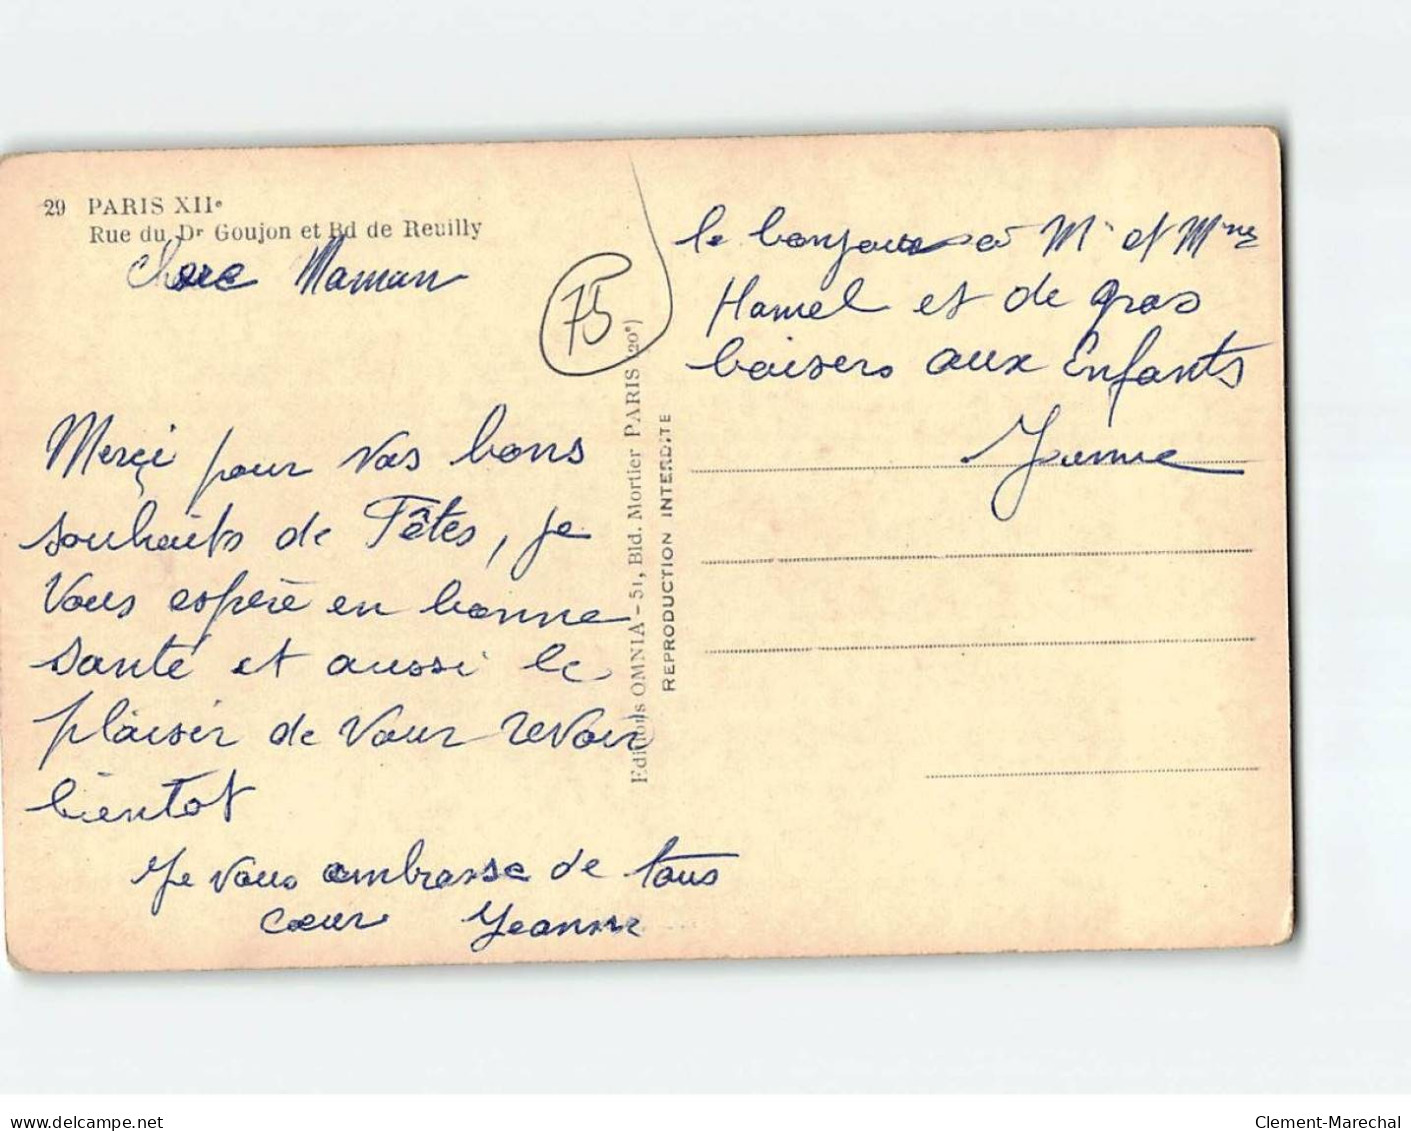 29 PARIS XIIe
Rue du Dr Goujon et Bd de Reuilly
Chere Maman
75
Merçi pour vos bons
souhaits de Fêtes, je
Vous espère en bonne
santé et aussi le
plaisir de Vour revoir
bientot
Je vous embrasse de tous
cœur Jeanne
Editions OMNIA - 51, Bld. Mortier PARIS (20e)
REPRODUCTION INTERDITE
le bonjour à Mr et Mme
Hamel et de gros
baisers aux Enfants
Jeanne
www.delcampe.net
Clement-Marechal